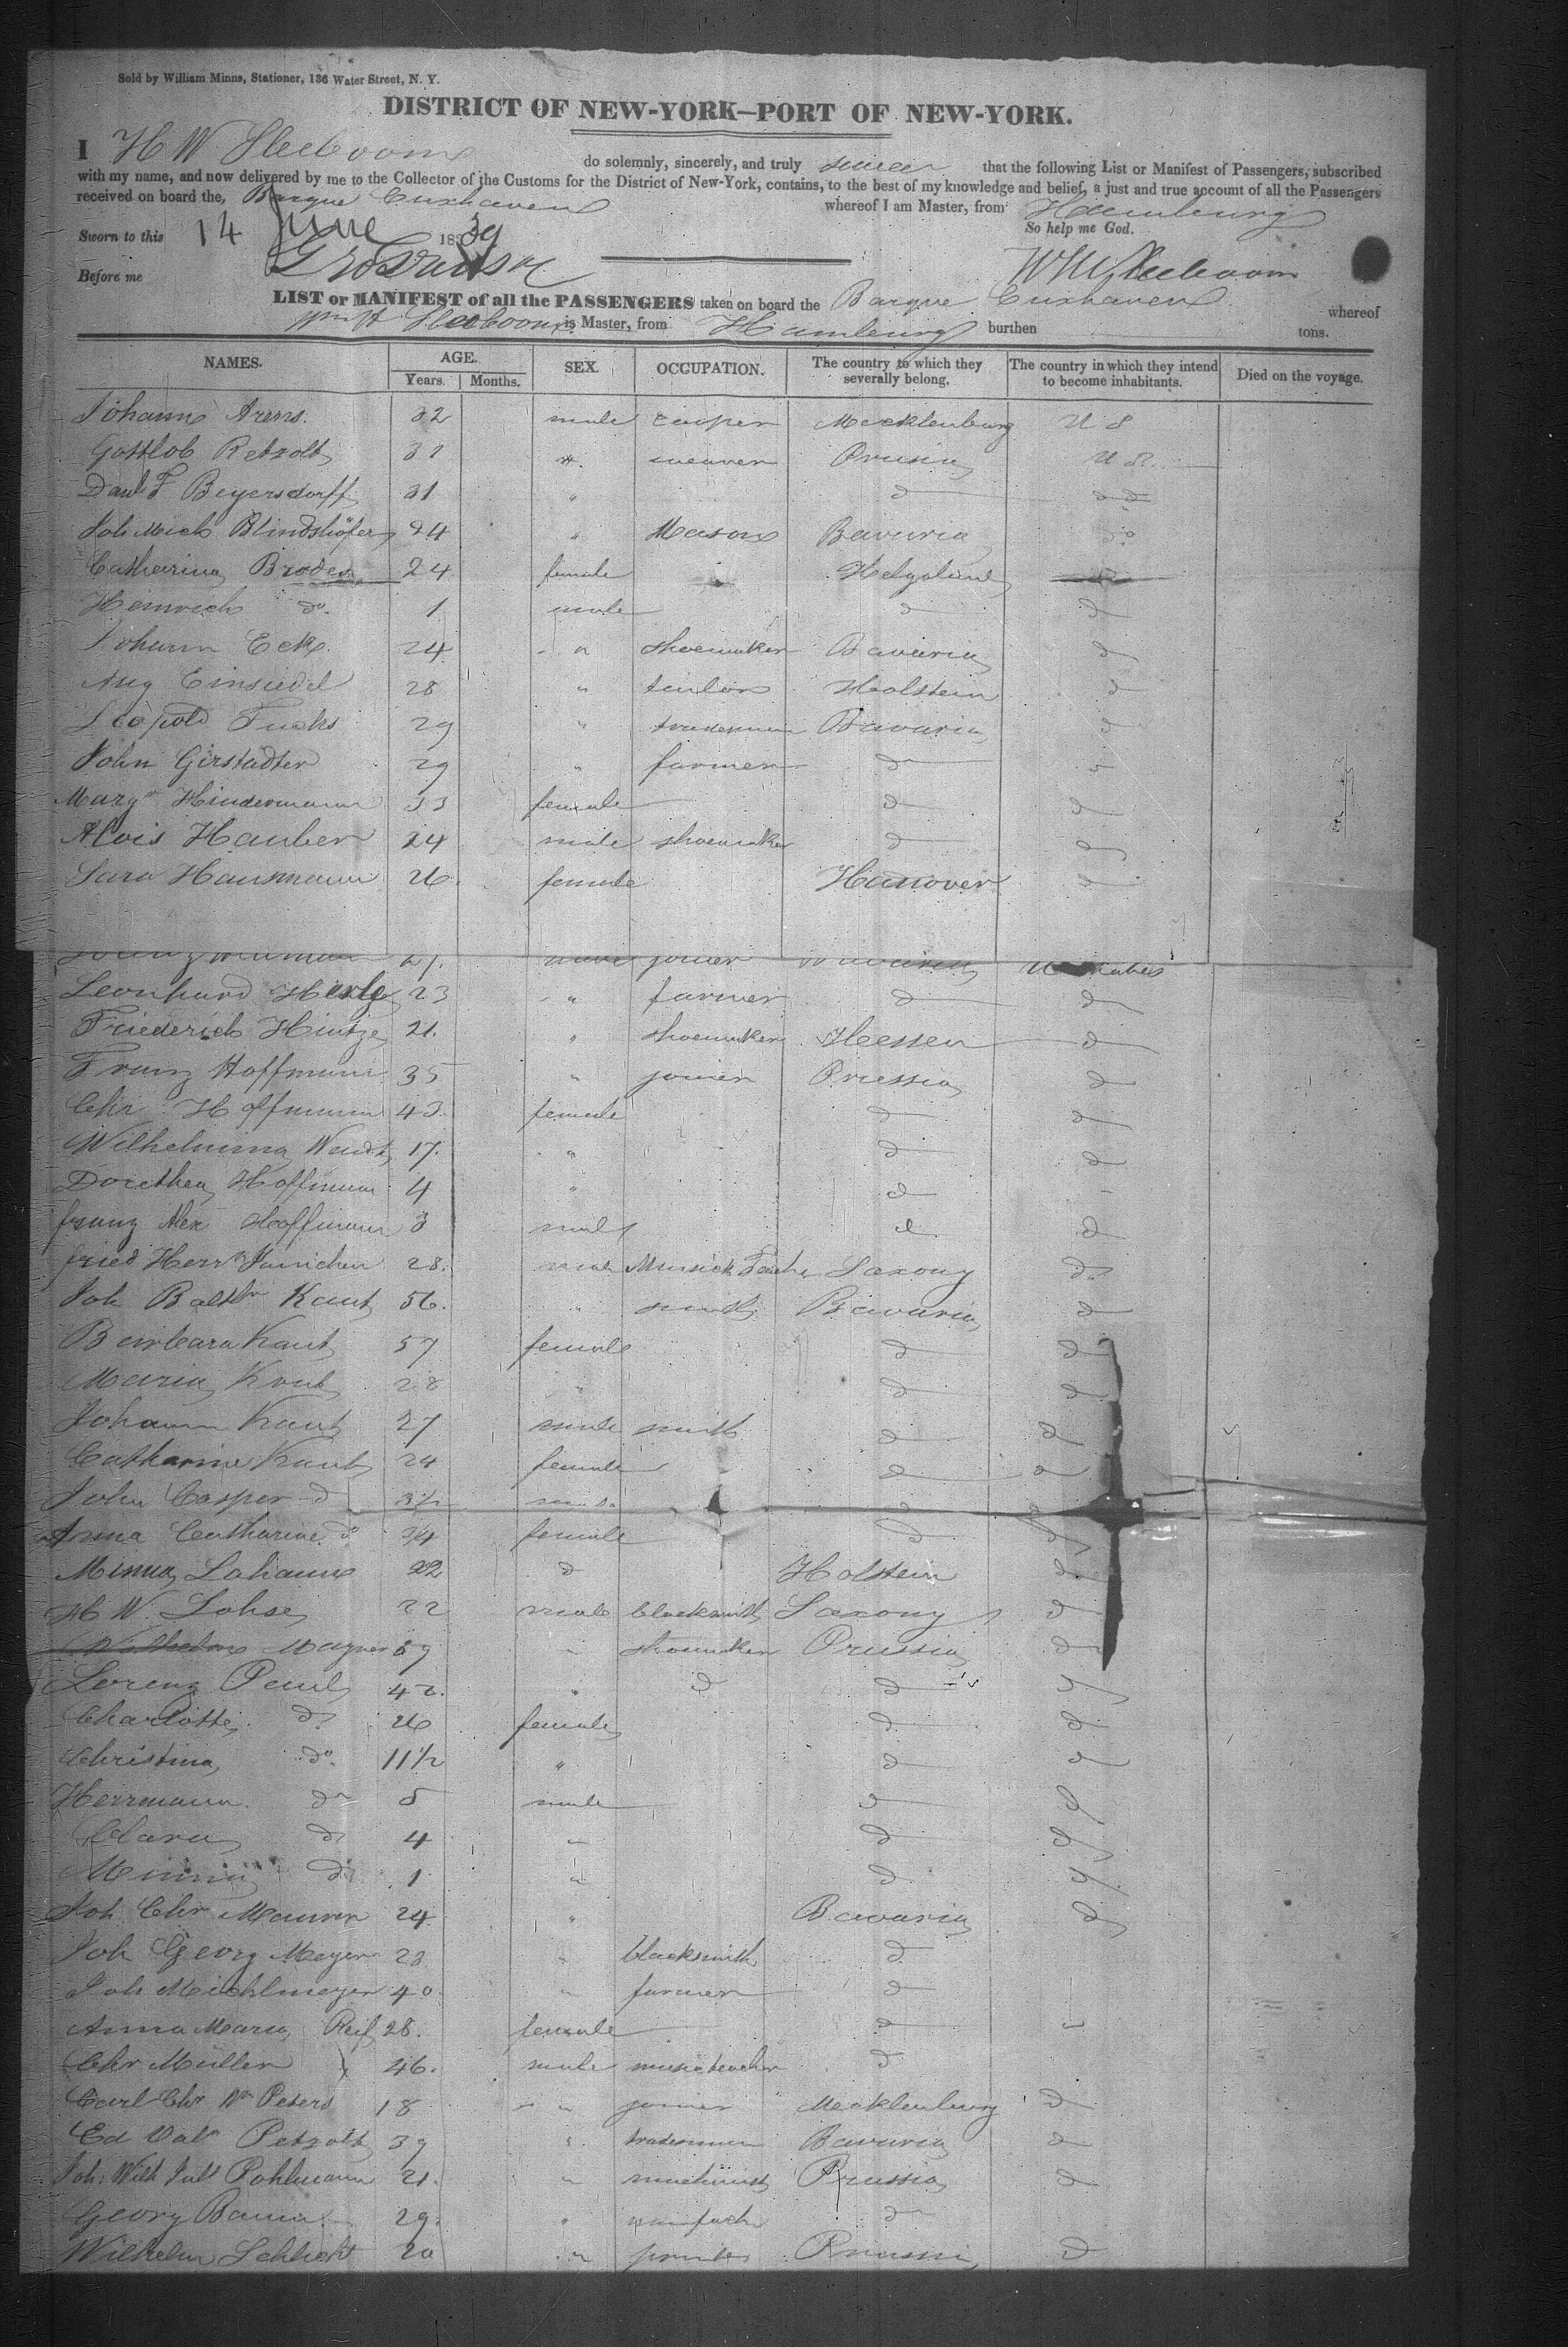 Sold by William Minns, Stationer, 136 Water Street, N. Y.
DISTRICT OF NEW-YORK—PORT OF NEW-YORK.
I H W Sleeboom do solemnly, sincerely, and truly swear that the following List or Manifest of Passengers, subscribed
with my name, and now delivered by me to the Collector of the Customs for the District of New-York, contains, to the best of my knowledge and belief, a just and true account of all the Passengers
received on board the, Barque Cuxhaven whereof I am Master, from Hamburg
So help me God.
Sworn to this 14 June 1839
Before me
LIST or MANIFEST of all the PASSENGERS taken on board the Barque Cuxhaven whereof
Sleeboom is Master, from Hamburg burthen tons.
NAMES. AGE. Years. Months. SEX. OCCUPATION. The country to which they severally belong. The country in which they intend to become inhabitants. Died on the voyage.
Johann Arens. 32 male cooper Mecklenburg U S
Gottlob Retzolt 31 " weaver Prusia U S.
Danl F Beyersdorff 31 " d d
Joh Mich Blindshöfer 24 " Mason Bavaria do
Catharina Brodes 24 female Helgoland
Heinrich do. 1 male d d
Johann Eck 24 " shoemaker Bavaria d
Aug Einsiedel 28 " tailor Holstein d
Leopold Fuchs 29 " tradesman Bavaria d
John Girstadter 29 " farmer do
Margr Hindermann 33 female d d
Alois Hauber 24 male shoemaker d d
Sara Hausmann 26. female Hanover d
27. male joiner Bavaria U States
Leonhard 23 " farmer d d
Friederich Hintze 21. " shoemaker Hessen d
Franz Hoffmann 35 " joiner Prussia d
Chr Hoffmann 43 female d d
Wilhelmina Wendt 17. " d d
Dorethea Hoffmann 4 " d
franz Alex Hoffmann 3 male d d
fried Herrm Janichen 28. male Musick Teacher Saxony do
Joh Balthr Kaut 56. " smith Bavaria d
Barbara Kaut 57 female d d
Maria Kaut 28 " d d
Johann Kaut 27 male smith d d
Catharine Kaut 24 female d d
John Casper d 3½ male d d
Anna Catharine do 3/4 female d d
Minna Lahann 22 d Holstein d
H W. Lohse 22 male blacksmith Saxony d
Wilhelm Wagner 39 " shoemaker Prussia d
Lorenz Paul 42. " d d d
Charlotte do. 26 female d d
Christina do. 11½ " d d
Herrmann. do 5 male d d
Clara do 4 " d d
Minna do 1 " d d
Joh Chr Maurer 24. " Bavaria d
Joh Georg Meyer 23 " blacksmith d
Joh Michlmeyer 40 " farmer d
Anna Maria Reif 28. female d
Chr Müller 46. male musicteacher d
Carl Chr Wm Peters 18 " joiner Mecklenburg d
Ed Valn Petzolt 39 " tradesman Bavaria d
Joh: Wilh Jul Pohlmann 21. " machinist Prussia d
Georg 29. " do
Wilhelm Schlicht 20 " printer Prussia d